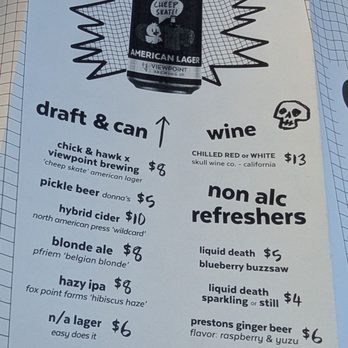 CHEEP
SKATE
AMERICAN LAGER
VIEWPOINT
draft & can
chick & hawk x
viewpoint brewing $8
'cheep skate' american lager
pickle beer donna's $5
hybrid cider $10
north american press 'wildcard'
blonde ale $8
pfriem 'belgian blonde'
hazy ipa $8
fox point farms 'hibiscus haze'
n/a lager $6
easy does it
wine
CHILLED RED or WHITE $13
skull wine co. - california
non alc
refreshers
liquid death $5
blueberry buzzsaw
liquid death
sparkling or still $4
prestons ginger beer $6
flavor: raspberry & yuzu